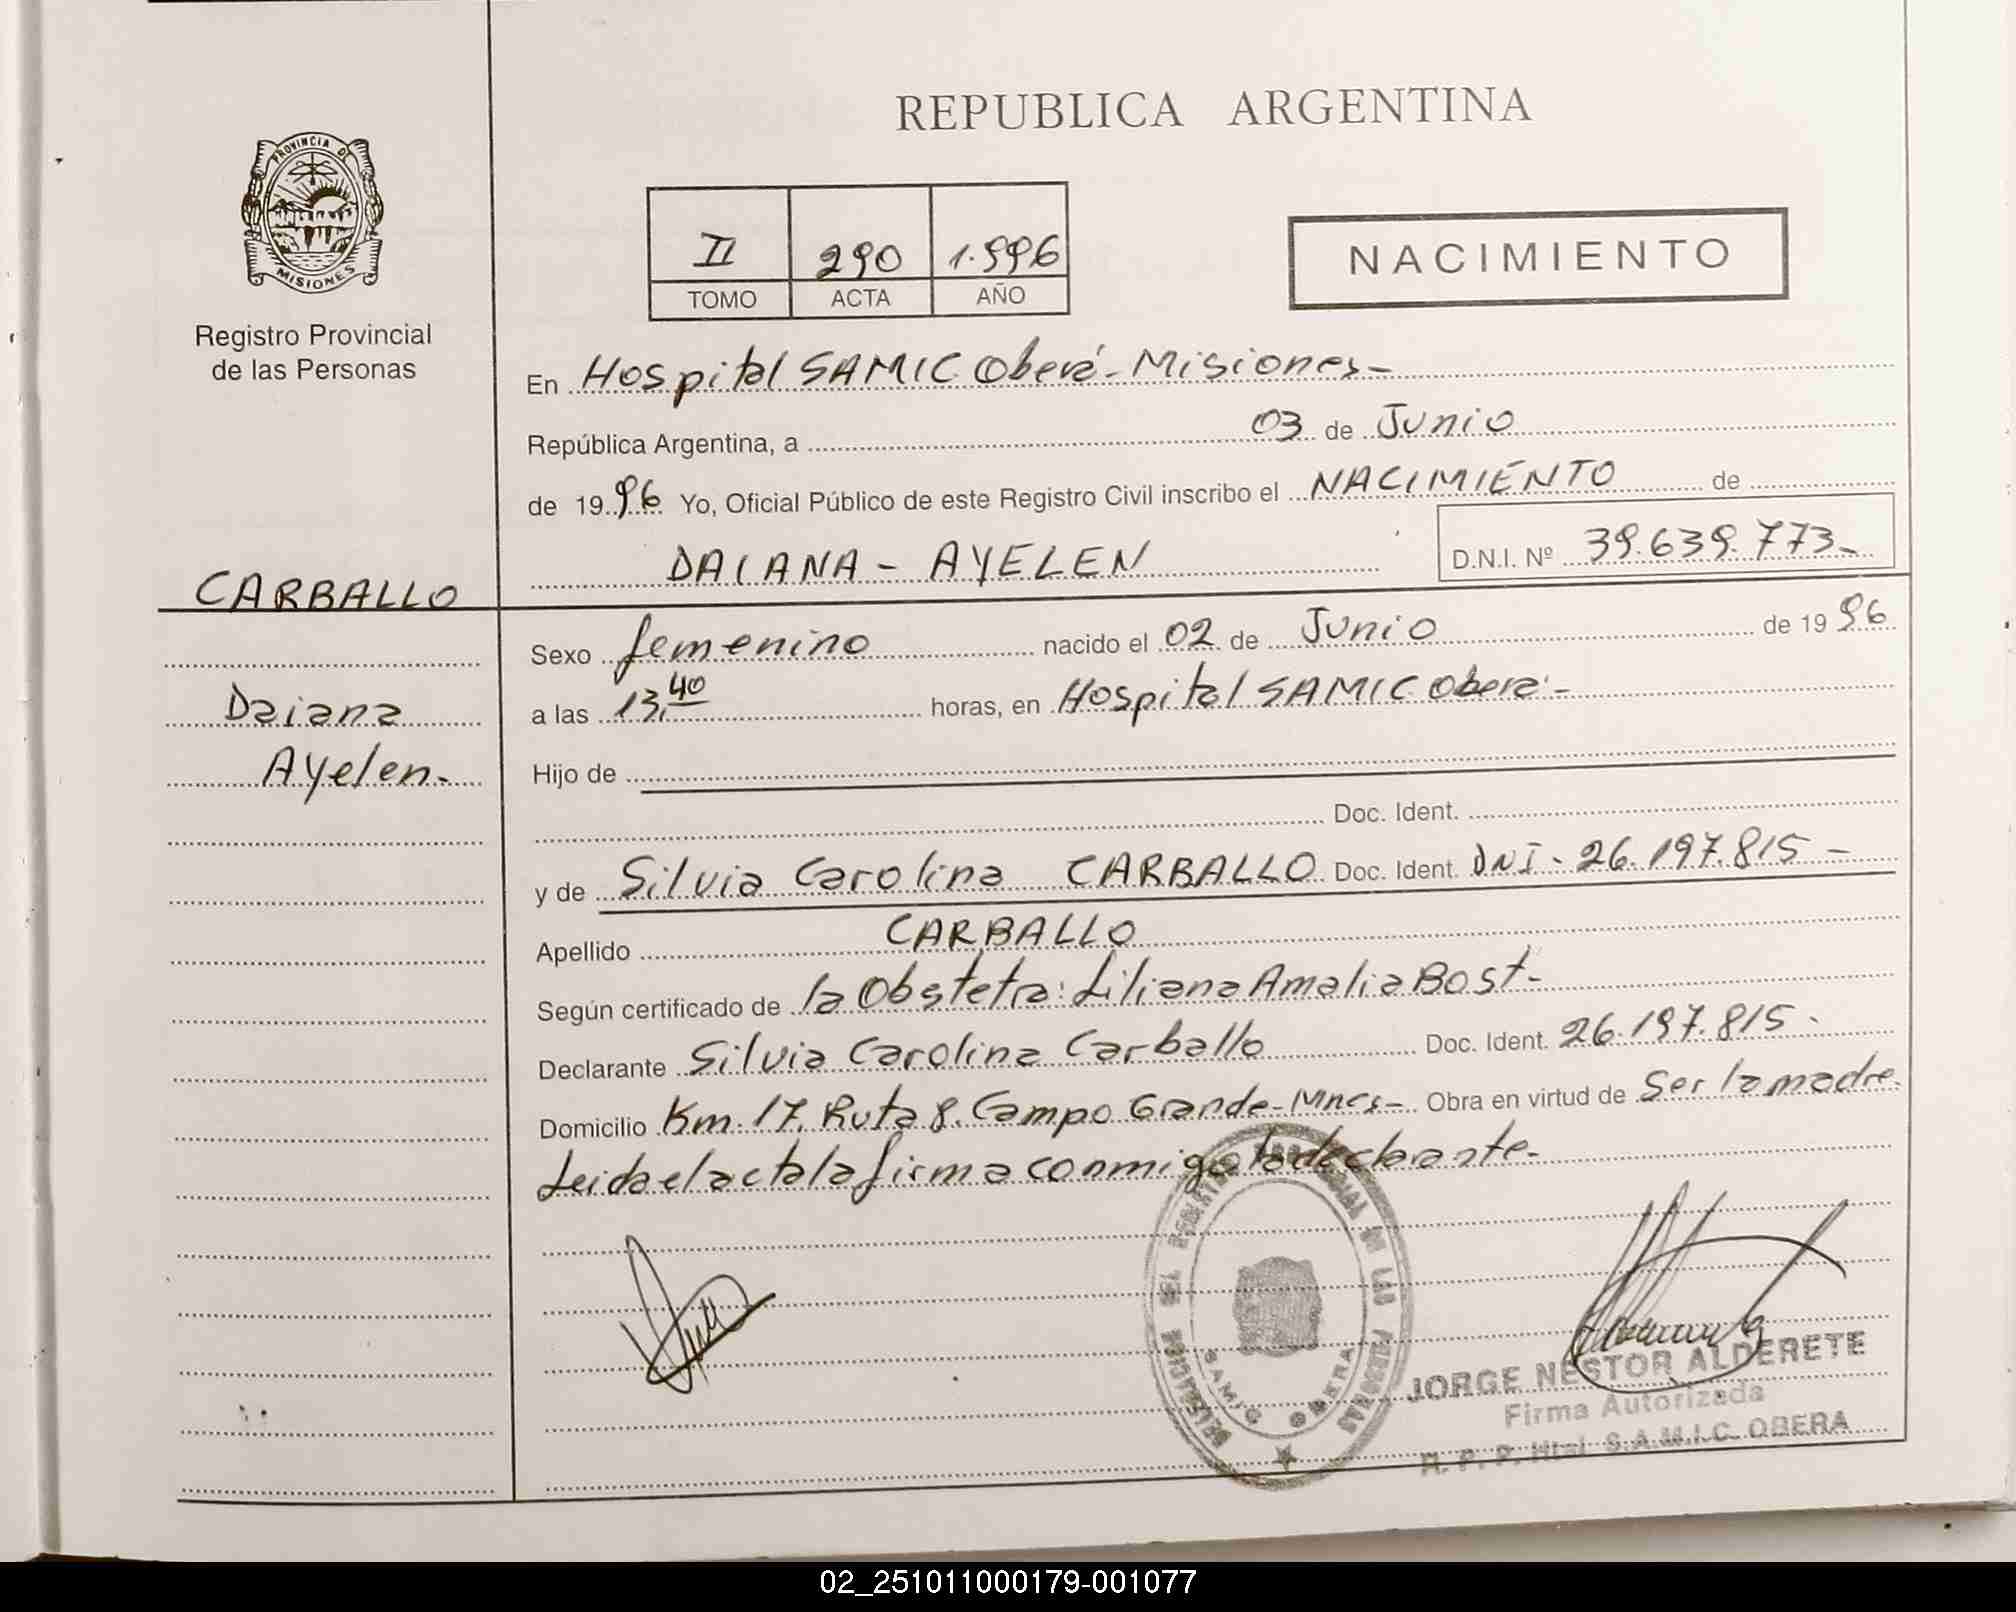 REPUBLICA ARGENTINA
PROVINCIA DE
MISIONES
Registro Provincial
de las Personas
II 290 1.996
TOMO ACTA AÑO
NACIMIENTO
En Hospital SAMIC Oberá - Misiones -
República Argentina, a 03 de Junio
de 1996 Yo, Oficial Público de este Registro Civil inscribo el NACIMIENTO de
DAIANA - AYELEN
D.N.I. Nº 39.639.773 -
CARBALLO
Daiana
Ayelen -
Sexo femenino nacido el 02 de Junio de 1996
a las 13,40 horas, en Hospital SAMIC Oberá -
Hijo de
Doc. Ident.
y de Silvia Carolina CARBALLO Doc. Ident. DNI - 26.197.815 -
Apellido CARBALLO
Según certificado de la Obstetra: Liliana Amalia Bost -
Declarante Silvia Carolina Carballo Doc. Ident. 26.197.815 -
Domicilio Km. 17. Ruta 8. Campo Grande - Mnes - Obra en virtud de Ser la madre.
Leida el acta la firma conmigo la declarante -
DELEGACION DEL REGISTRO PROVINCIAL DE LAS PERSONAS
SAMIC OBERA
JORGE NESTOR ALDERETE
Firma Autorizada
R. P. P. Htal. S.A.M.I.C. OBERA
02_251011000179-001077